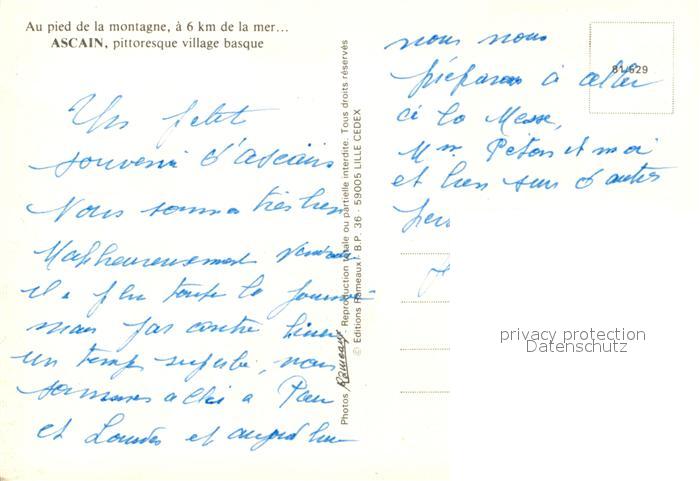 Au pied de la montagne, à 6 km de la mer...
ASCAIN, pittoresque village basque
Un petit
souvenir d'ascain
Nous sommes très bien
Malheureusement Vendredi
il a plu toute la journée
mais par contre hier
un temps superbe, nous
sommes allés a Pau
et Lourdes et aujourd'hui
Photos Rameau, Reproduction totale ou partielle interdite. Tous droits réservés
© Editions Rameaux - B.P. 36 - 59005 LILLE CEDEX
nous nous
préparons à aller
à la Messe,
Mme Peton et moi
et bien sur d'autres
pers
81/629
privacy protection
Datenschutz